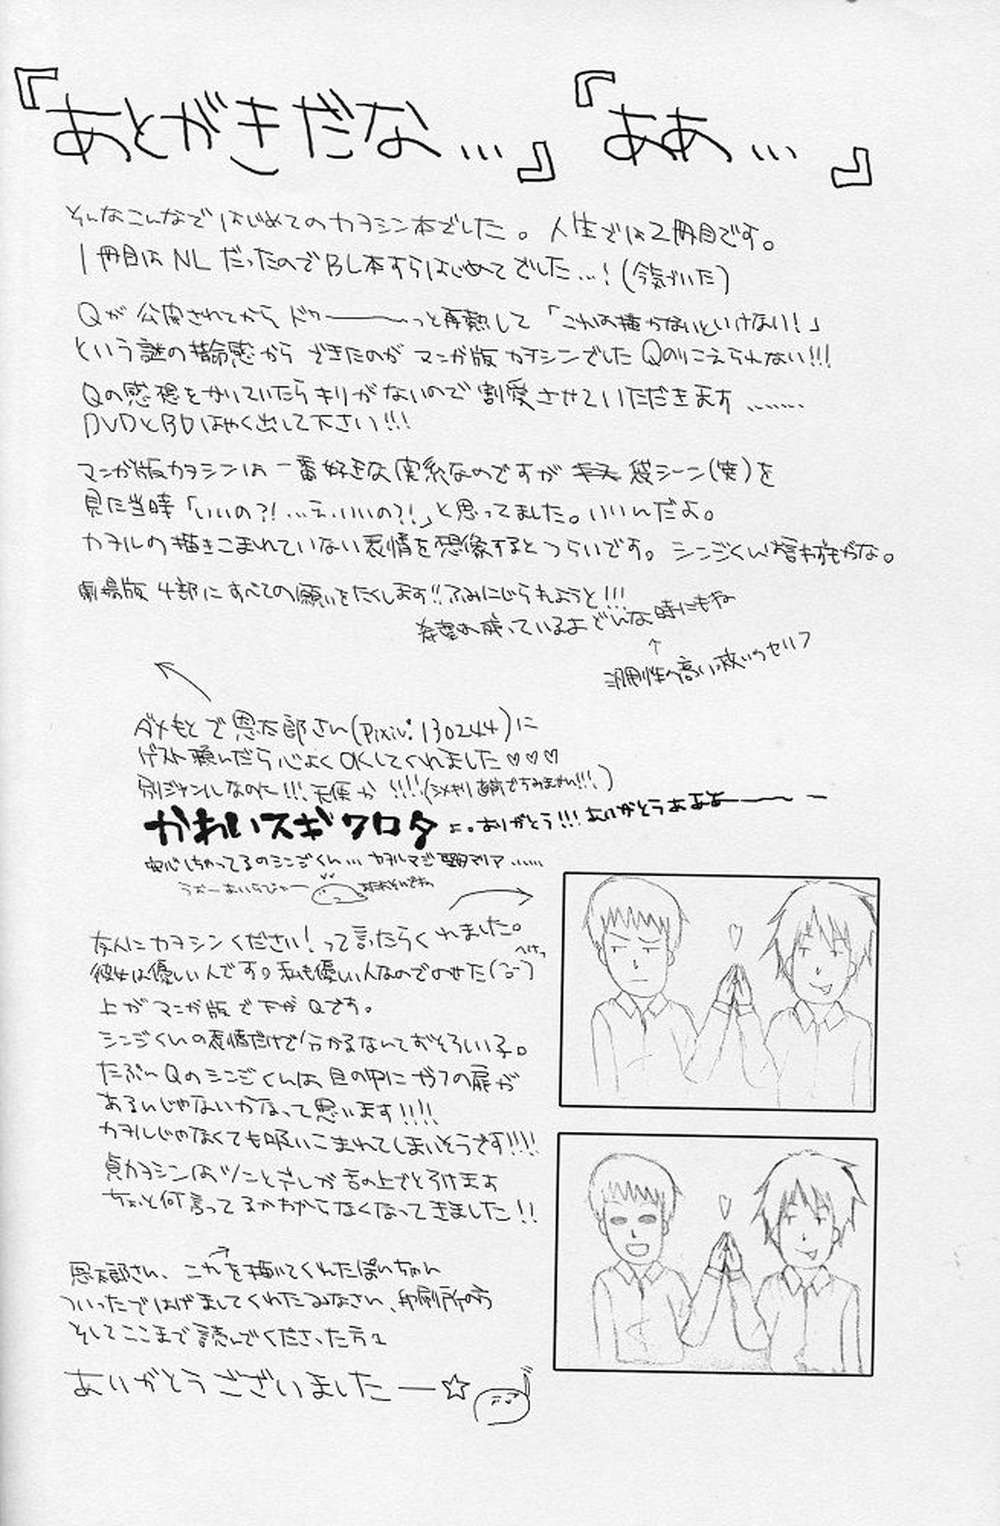 『あとがきだな…』『ああ…』
そんなこんなではじめてのカヲシン本でした。人生では2冊目です。
1冊目はNLだったのでBL本すらはじめてでした…!(今気づいた)
Qが公開されてからドカーーーっと再熱して「これは描かないといけない!」
という謎の指令感からできたのがマンガ版カヲシンでしたQのりこえられない!!!
Qの感想をかいていたらキリがないので割愛させていただきます……
DVDとBDはやく出して下さい!!!
マンガ版カヲシンは一番好きな実系なのですが 袋シーン(笑)を
見た当時「いいの?!…え、いいの?!」と思ってました。いいんだよ。
カヲルの描きこまれていない表情を想像するとつらいです。シンジくんは言わずもがな。
劇場版4部にすべての願いをたくします!!ふみにじられようと!!!
希望は残っているよどんな時にもね
↑
汎用性の高い救いのセリフ
ダメもとで恩太郎さん(Pixiv:130244)に
ゲスト頼んだら心よくOKしてくれました♡♡♡
別ジャンルなのに!!!天使か!!!!(シメキリ直前ですみません!!!)
かわいスギワロタ よ。ありがとう!!!ありがとうおおおーーー
安心しちゃってるのシンジくん…カヲルマジ聖母マリア……
友人にカヲシンください!って言ったらくれました。
彼女は優しい人です。私も優しい人なのでのせた
上がマンガ版で下がQです。
シンジくんの表情だけで分かるなんておそろしい子。
たぶんQのシンジくんは目の中にガフの扉が
あるんじゃないかなって思います!!!!
カヲルじゃなくても吸いこまれてしまいそうです!!!!
貞カヲシンはツンとデレが舌の上でとろけます
ちょっと何言ってるかわからなくなってきました!!
恩太郎さん、これを描いてくれたぽいちゃん
ついったではげましてくれたみなさん、印刷所の方
そしてここまで読んでくださった方々
ありがとうございましたー☆